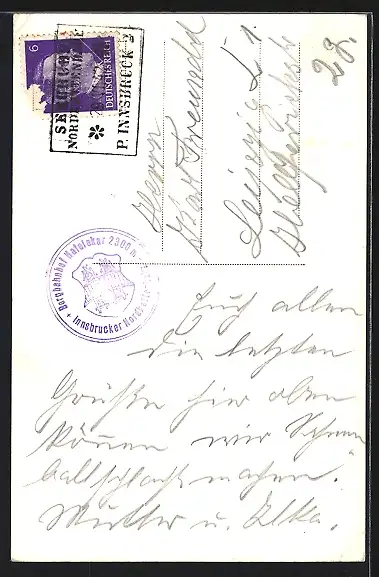 6
DEUTSCHES REICH
SE
NORD
P. INNSBRUCK 2
Herrn
Karl Freundel
Leipzig C 1
28.
Bergbahnhof Hafelekar 2300 m
Innsbrucker Nordkettenbahn
Euch allen
die letzten
Grüße hier oben
können wir Schnee
ballschlacht machen.
Mutter u. Ilka.